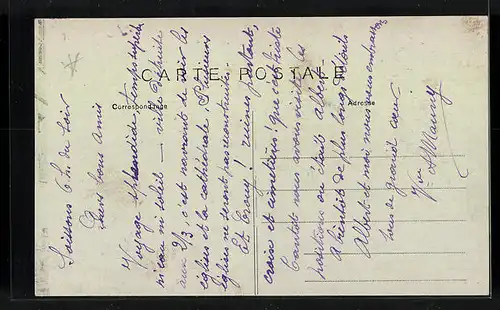 CARTE POSTALE
Correspondance
Adresse
Soissons 6 h. du soir
Chers bons amis
Voyage splendide, temps superbe
ni eau ni soleil — ville détruite
aux 2/3, c'est navrant de voir les
églises et la cathédrale. Plusieurs
églises ne seront pas reconstruites.
Et Crouy ! ruines partout,
croix et cimetières ! que c'est triste
Tantôt nous avons visité les
positions où était Albert.
A bientôt de plus longs détails
Albert et moi nous vous embrassons
tous de grand cœur